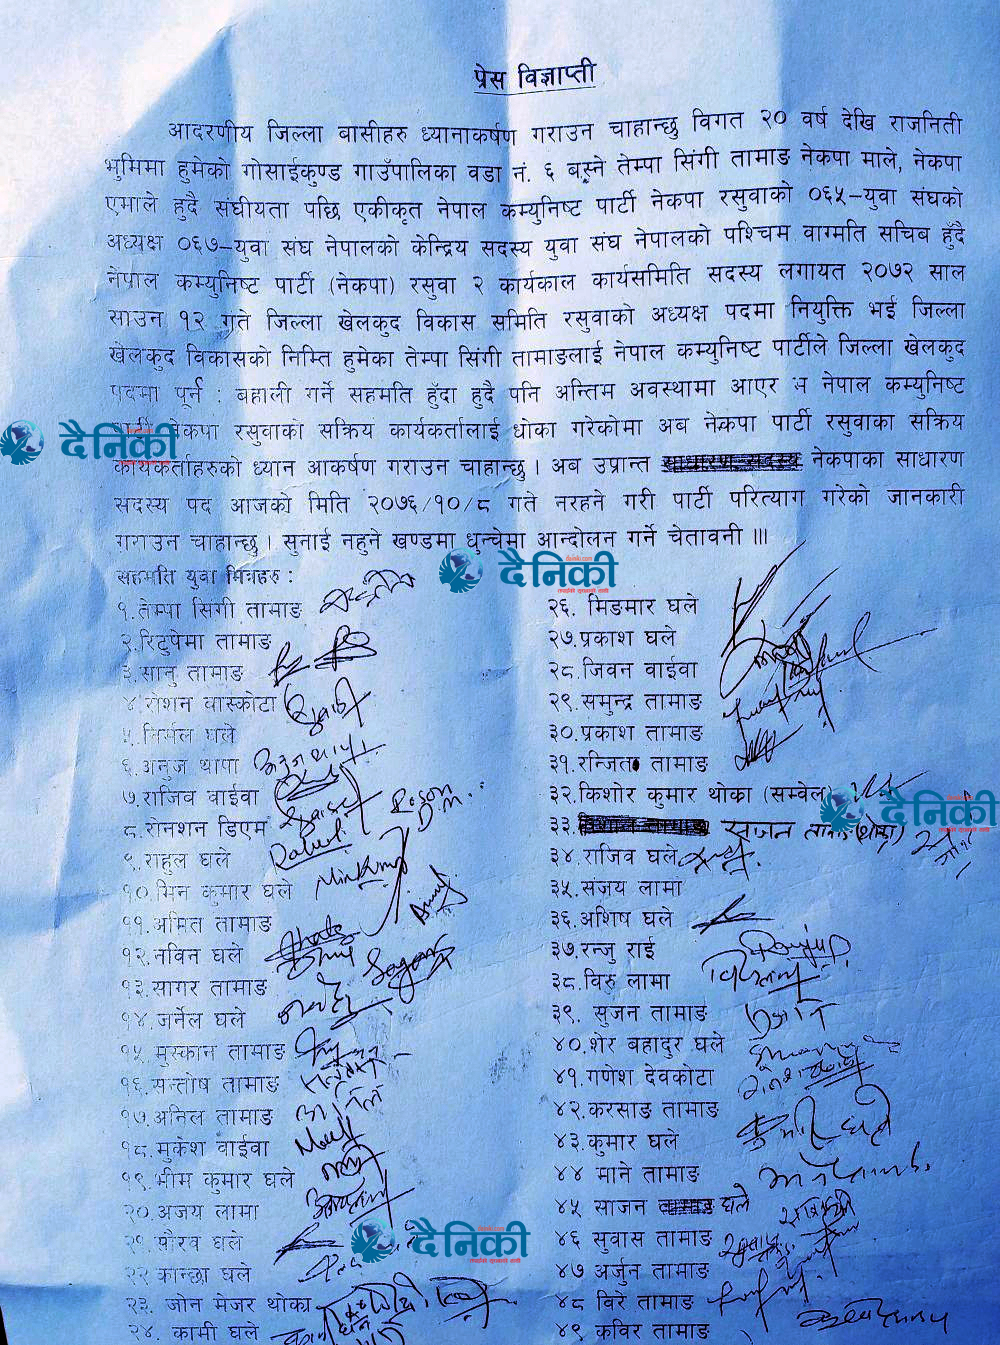 प्रेस विज्ञाप्ती
आदरणीय जिल्ला बासीहरु ध्यानाकर्षण गराउन चाहान्छु विगत २० वर्ष देखि राजनिती
भुमिमा हुमेको गोसाईकुण्ड गाउँपालिका वडा नं. ६ बस्ने तेम्पा सिंगी तामाङ नेकपा माले, नेकपा
एमाले हुदै संघीयता पछि एकीकृत नेपाल कम्युनिष्ट पार्टी नेकपा रसुवाको ०६५-युवा संघको
अध्यक्ष ०६७-युवा संघ नेपालको केन्द्रिय सदस्य युवा संघ नेपालको पश्चिम वाग्मति सचिब हुँदै
नेपाल कम्युनिष्ट पार्टी (नेकपा) रसुवा २ कार्यकाल कार्यसमिति सदस्य लगायत २०७२ साल
साउन १२ गते जिल्ला खेलकुद विकास समिति रसुवाको अध्यक्ष पदमा नियुक्ति भई जिल्ला
खेलकुद विकासको निम्ति हुमेका तेम्पा सिंगी तामाङलाई नेपाल कम्युनिष्ट पार्टीले जिल्ला खेलकुद
पदमा पूर्न : बहाली गर्ने सहमति हुँदा हुदै पनि अन्तिम अवस्थामा आएर नेपाल कम्युनिष्ट
पार्टी नेकपा रसुवाका सक्रिय कार्यकर्तालाई धोका गरेकोमा अब नेकपा पार्टी रसुवाका सक्रिय
दैनिकी
कार्यकर्ताहरुको ध्यान आकर्षण गराउन चाहान्छु । अब उप्रान्त साधारण सदस्य नेकपाका साधारण
सदस्य पद आजको मिति २०७६/१०/८ गते नरहने गरी पार्टी परित्याग गरेको जानकारी
गराउन चाहान्छु । सुनाई नहुने खण्डमा धुन्चेमा आन्दोलन गर्ने चेतावनी ॥।
दैनिकी
सहमति युवा मित्रहरु :
१.तेम्पा सिंगी तामाङ
२.रिटुपेमा तामाङ
३.सानु तामाङ
४.रोशन वास्कोटा
५.निर्मल घले
६.अनुज थापा
७.राजिव वाईवा
८.रोनशन डिएम
९.राहुल घले
१०.मिन कुमार घले
११.अमित तामाङ
१२.नविन घले
१३.सागर तामाङ
१४.जर्नेल घले
१५.मुस्कान तामाङ
१६.सन्तोष तामाङ
१७.अनिल तामाङ
१८.मुकेश वाईवा
१९.भीम कुमार घले
२०.अजय लामा
२१.सौरव घले
दैनिकी
२२ कान्छा घले
२३. जोन मेजर थोका
२४. कामी घले
२६. मिङमार घले
२७.प्रकाश घले
२८.जिवन वाईवा
२९.समुन्द्र तामाङ
३०.प्रकाश तामाङ
३१.रन्जित तामाङ
३२.किशोर कुमार थोका (सम्वेल
दैनिकी
३३. सृजन
३४.राजिव घले
३५.संजय लामा
३६.अशिष घले
३७.रन्जु राई
३८.विरु लामा
३९. सुजन तामाङ
४०.शेर बहादुर घले
४१.गणेश देवकोटा
४२.करसाङ तामाङ
४३.कुमार घले
४४ माने तामाङ
४५ साजन घले
४६ सुवास तामाङ
४७ अर्जुन तामाङ
४८ विरे तामाङ
४९ कविर तामाङ